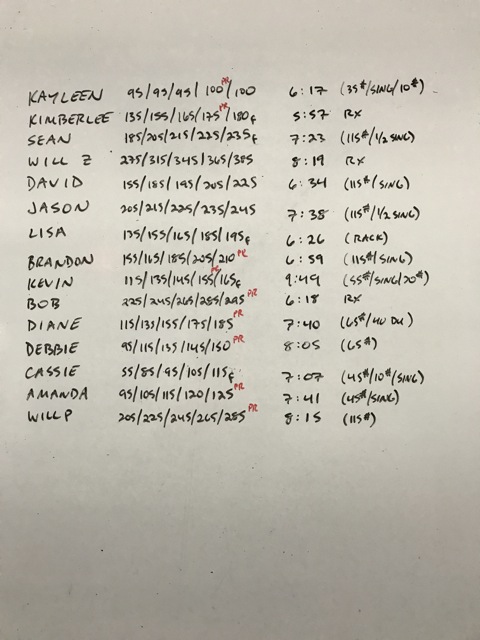 KAYLEEN 95/95/95/100PR/100 6:17 (35#/SING/10#)
KIMBERLEE 135/155/165/175PR/180F 5:57 RX
SEAN 185/205/215/225/235F 7:23 (115#/1/2 SING)
WILL Z 275/315/345/365/385 8:19 RX
DAVID 155/185/195/205/225 6:34 (115#/SING)
JASON 205/215/225/235/245 7:38 (115#/1/2 SING)
LISA 135/155/165/185/195F 6:26 (RACK)
BRANDON 155/165/185/205/210PR 6:59 (115#/SING)
KEVIN 115/135/145/155PR/165F 9:49 (55#/SING/20#)
BOB 225/245/265/285/295PR 6:18 RX
DIANE 115/135/155/175/185PR 7:40 (65#/40 DU)
DEBBIE 95/115/135/145/150PR 8:05 (65#)
CASSIE 55/85/95/105/115F 7:07 (45#/10#/SING)
AMANDA 95/105/115/120/125PR 7:41 (45#/SING)
WILL P 205/225/245/265/285PR 8:15 (115#)